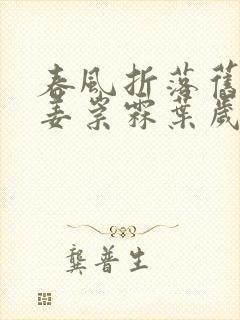 春風折落舊
姜崇霖葉歲
龔普生